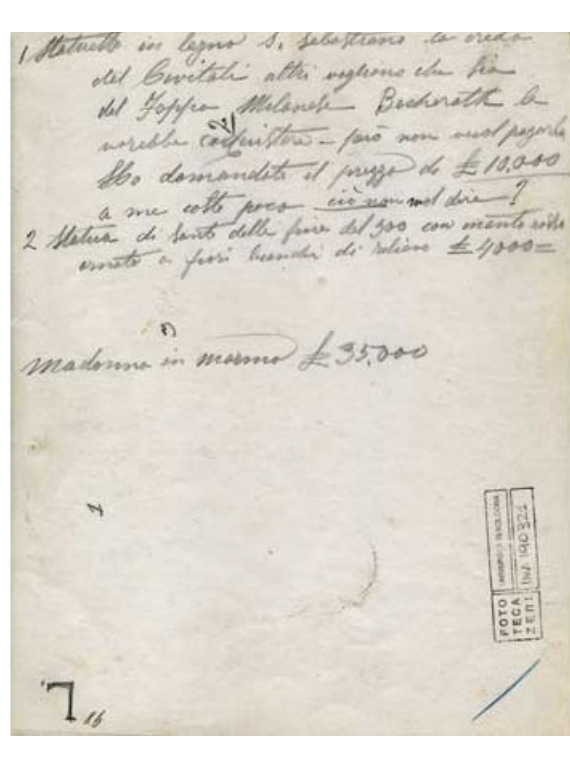 1 Statuette in legno S. Sebastiano lo credo
del Civitali altri vogliono che sia
del Foppa Milanese Beckerath la
vorebbe acquistare - però non vuol pagarla
2
Ho domandato il prezzo di £ 10.000
a me costa poco ciò non vuol dire?
2 Statua di Santo della fine del 300 con manto
ornato a fiori di rilievo £ 4000=
3
Madonna in marmo £ 35.000
1
FOTO
TECA
ZERI
INV 190321
7
16